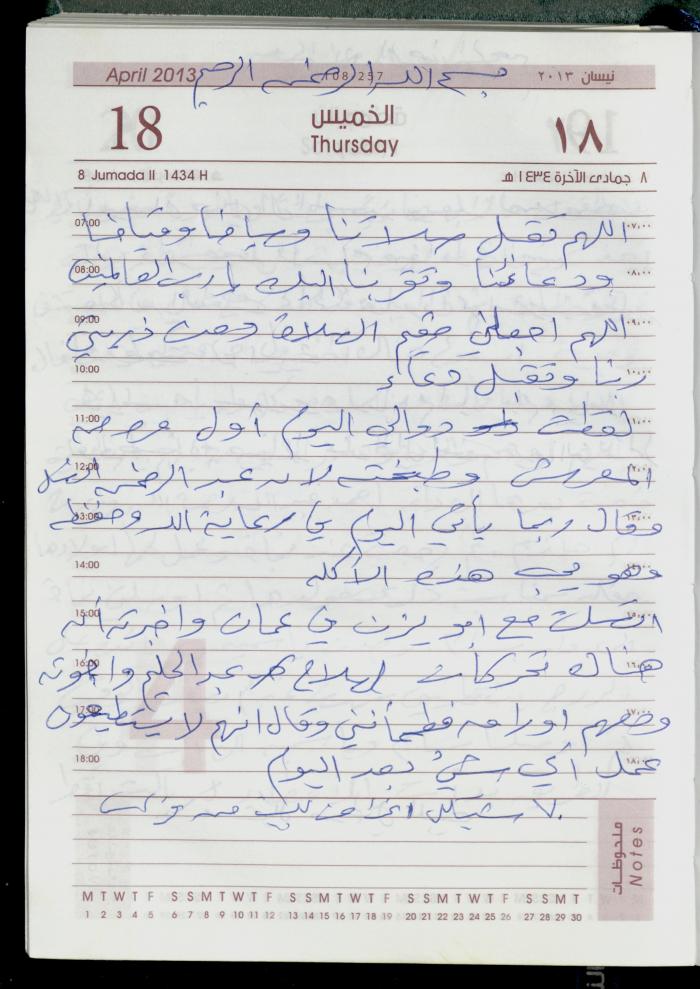 April 2013 108257 نيسان ٢٠١٣
بسم الله الرحمن الرحيم
18 الخميس ١٨
Thursday
8 Jumada II 1434 H ٨ جمادى الآخرة ١٤٣٤ هـ
07:00 اللهم تقبل صلاتنا وصيامنا وقيامنا ٠٧:٠٠
08:00 ودعائنا وتقربنا اليك يا رب العالمين ٠٨:٠٠
09:00 اللهم اجعلني مقيم الصلاة ومن ذريتي ٠٩:٠٠
10:00 ربنا وتقبل دعاء ١٠:٠٠
11:00 لقطت دوالي اليوم أول مرة من ١١:٠٠
12:00 المعرش وطبخته لانه عبد الرحمن اتصل ١٢:٠٠
13:00 وقال ربما يأتي اليوم في رعاية الله وحفظه ١٣:٠٠
14:00 وهو يحب هذه الأكله ١٤:٠٠
15:00 اتصلت مع ابو يزن في عمان واخبرته أنه ١٥:٠٠
16:00 هناك تحركات لصلاح عبد الحليم واخوته ١٦:٠٠
17:00 ومعهم اوراق فطمأنني وقال انهم لا يستطيعون ١٧:٠٠
18:00 عمل أي شيء بعد اليوم ١٨:٠٠
٧٠ شيكل من
ملحوظات
Notes
M T W T F S S M T W T F S S M T W T F S S M T W T F S S M T
1 2 3 4 5 6 7 8 9 10 11 12 13 14 15 16 17 18 19 20 21 22 23 24 25 26 27 28 29 30